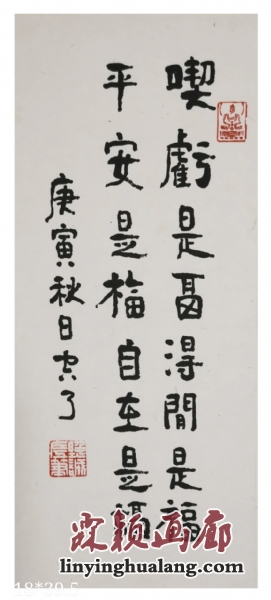 喫虧是畐得閒是福
平安是福自在是福
庚寅秋日空了
颖画廊
linyinghualang.com